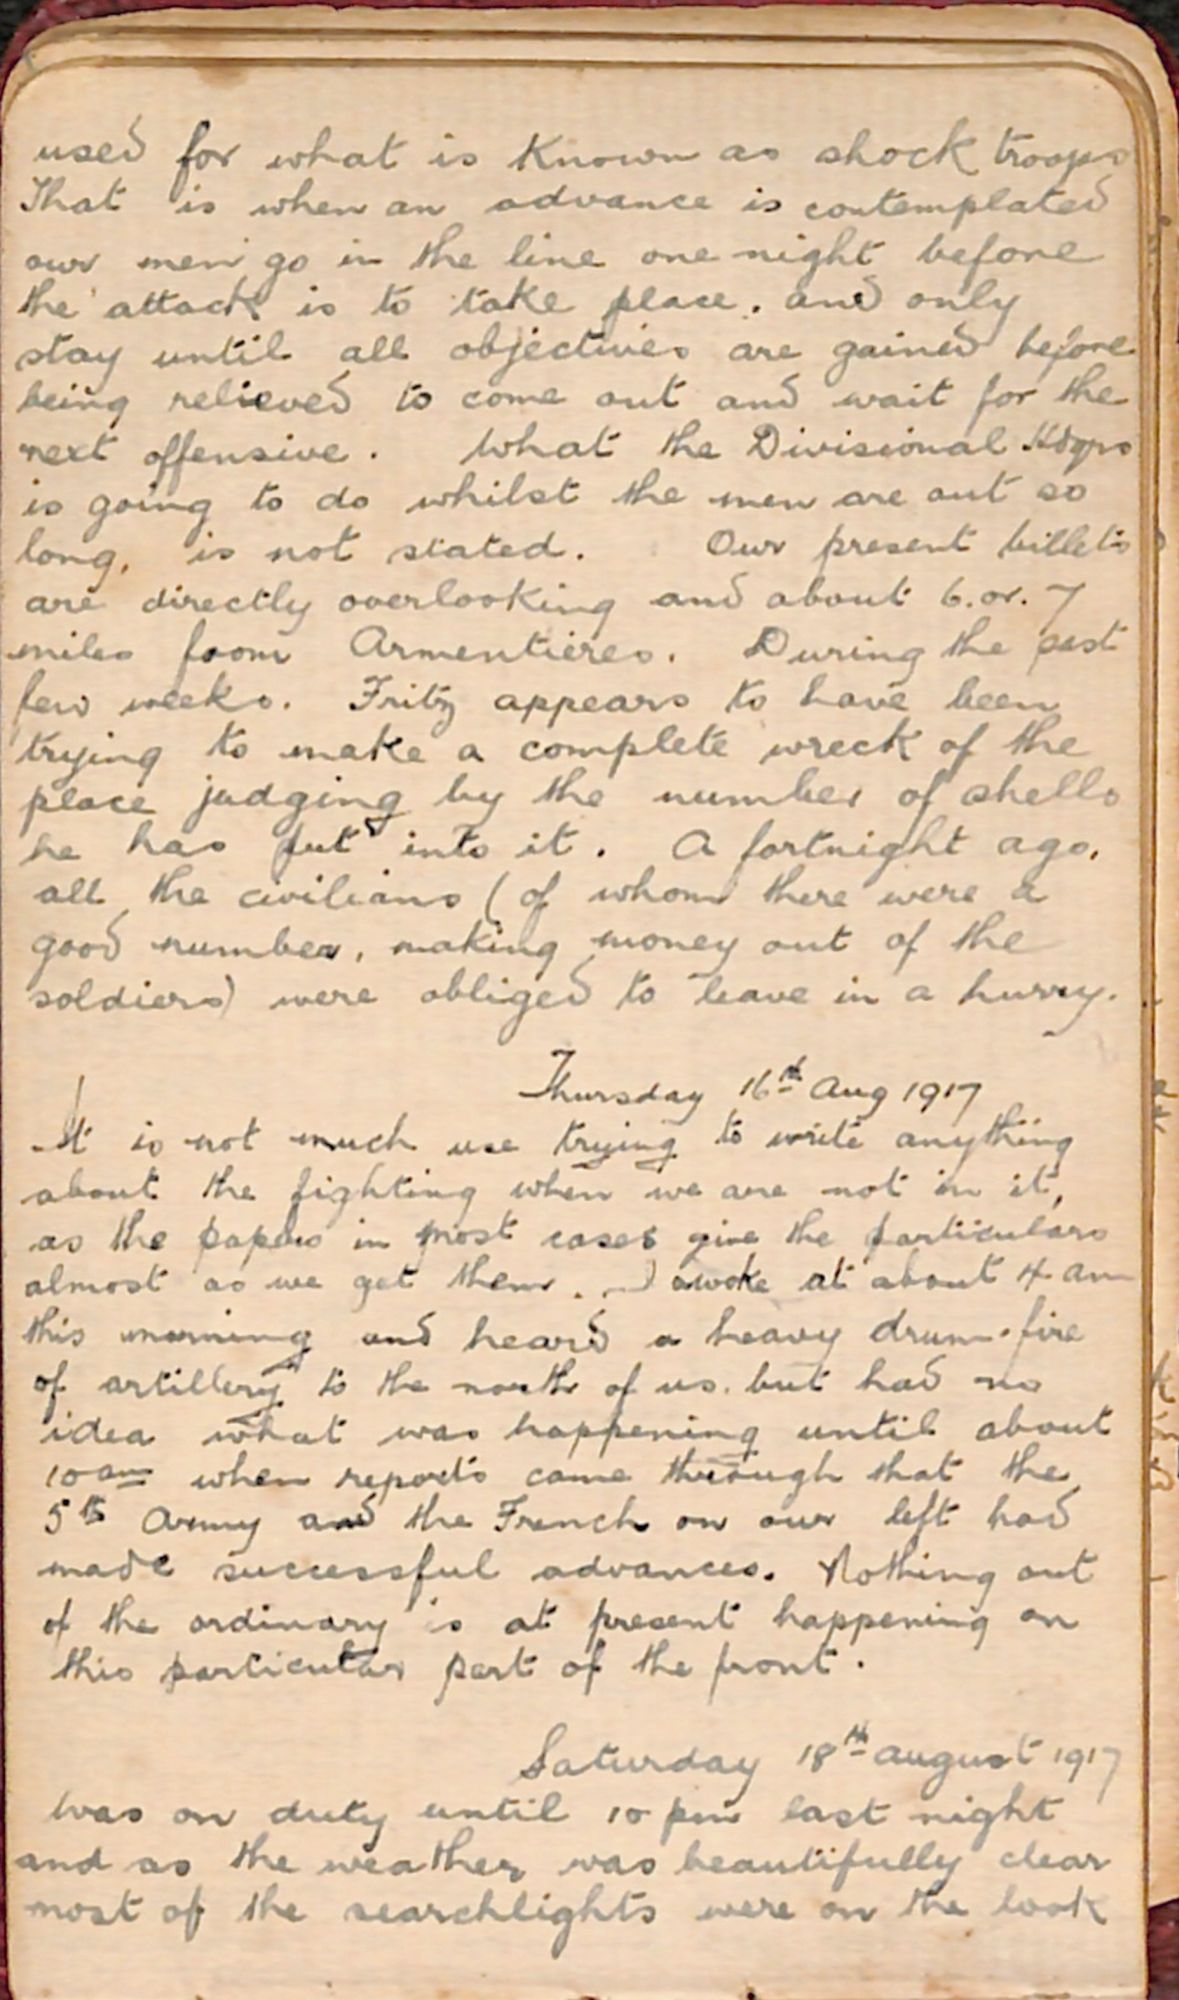 used for what is known as shock troops
That is when an advance is contemplated
our men go in the line one night before
the attack is to take place. and only
stay until all objectives are gained before
being relieved to come out and wait for the
next offensive. What the Divisional Hdqrs
is going to do whilst the men are out so
long, is not stated. Our present billets
are directly overlooking and about 6. or. 7
miles from Armentieres. During the past
few weeks. Fritz appears to have been
trying to make a complete wreck of the
place judging by the number of shells
he has put into it. A fortnight ago,
all the civilians (of whom there were a
good number, making money out of the
soldiers) were obliged to leave in a hurry.
Thursday 16th Aug 1917
It is not much use trying to write anything
about the fighting when we are not in it,
as the papers in most cases give the particulars
almost as we get them. I awoke at about 4 am
this morning and heard a heavy drum-fire
of artillery to the north of us. but had no
idea what was happening until about
10 am when reports came through that the
5th Army and the French on our left had
made successful advances. Nothing out
of the ordinary is at present happening on
this particular part of the front.
Saturday 18th August 1917
Was on duty until 10 pm last night
and as the weather was beautifully clear
most of the searchlights were on the look